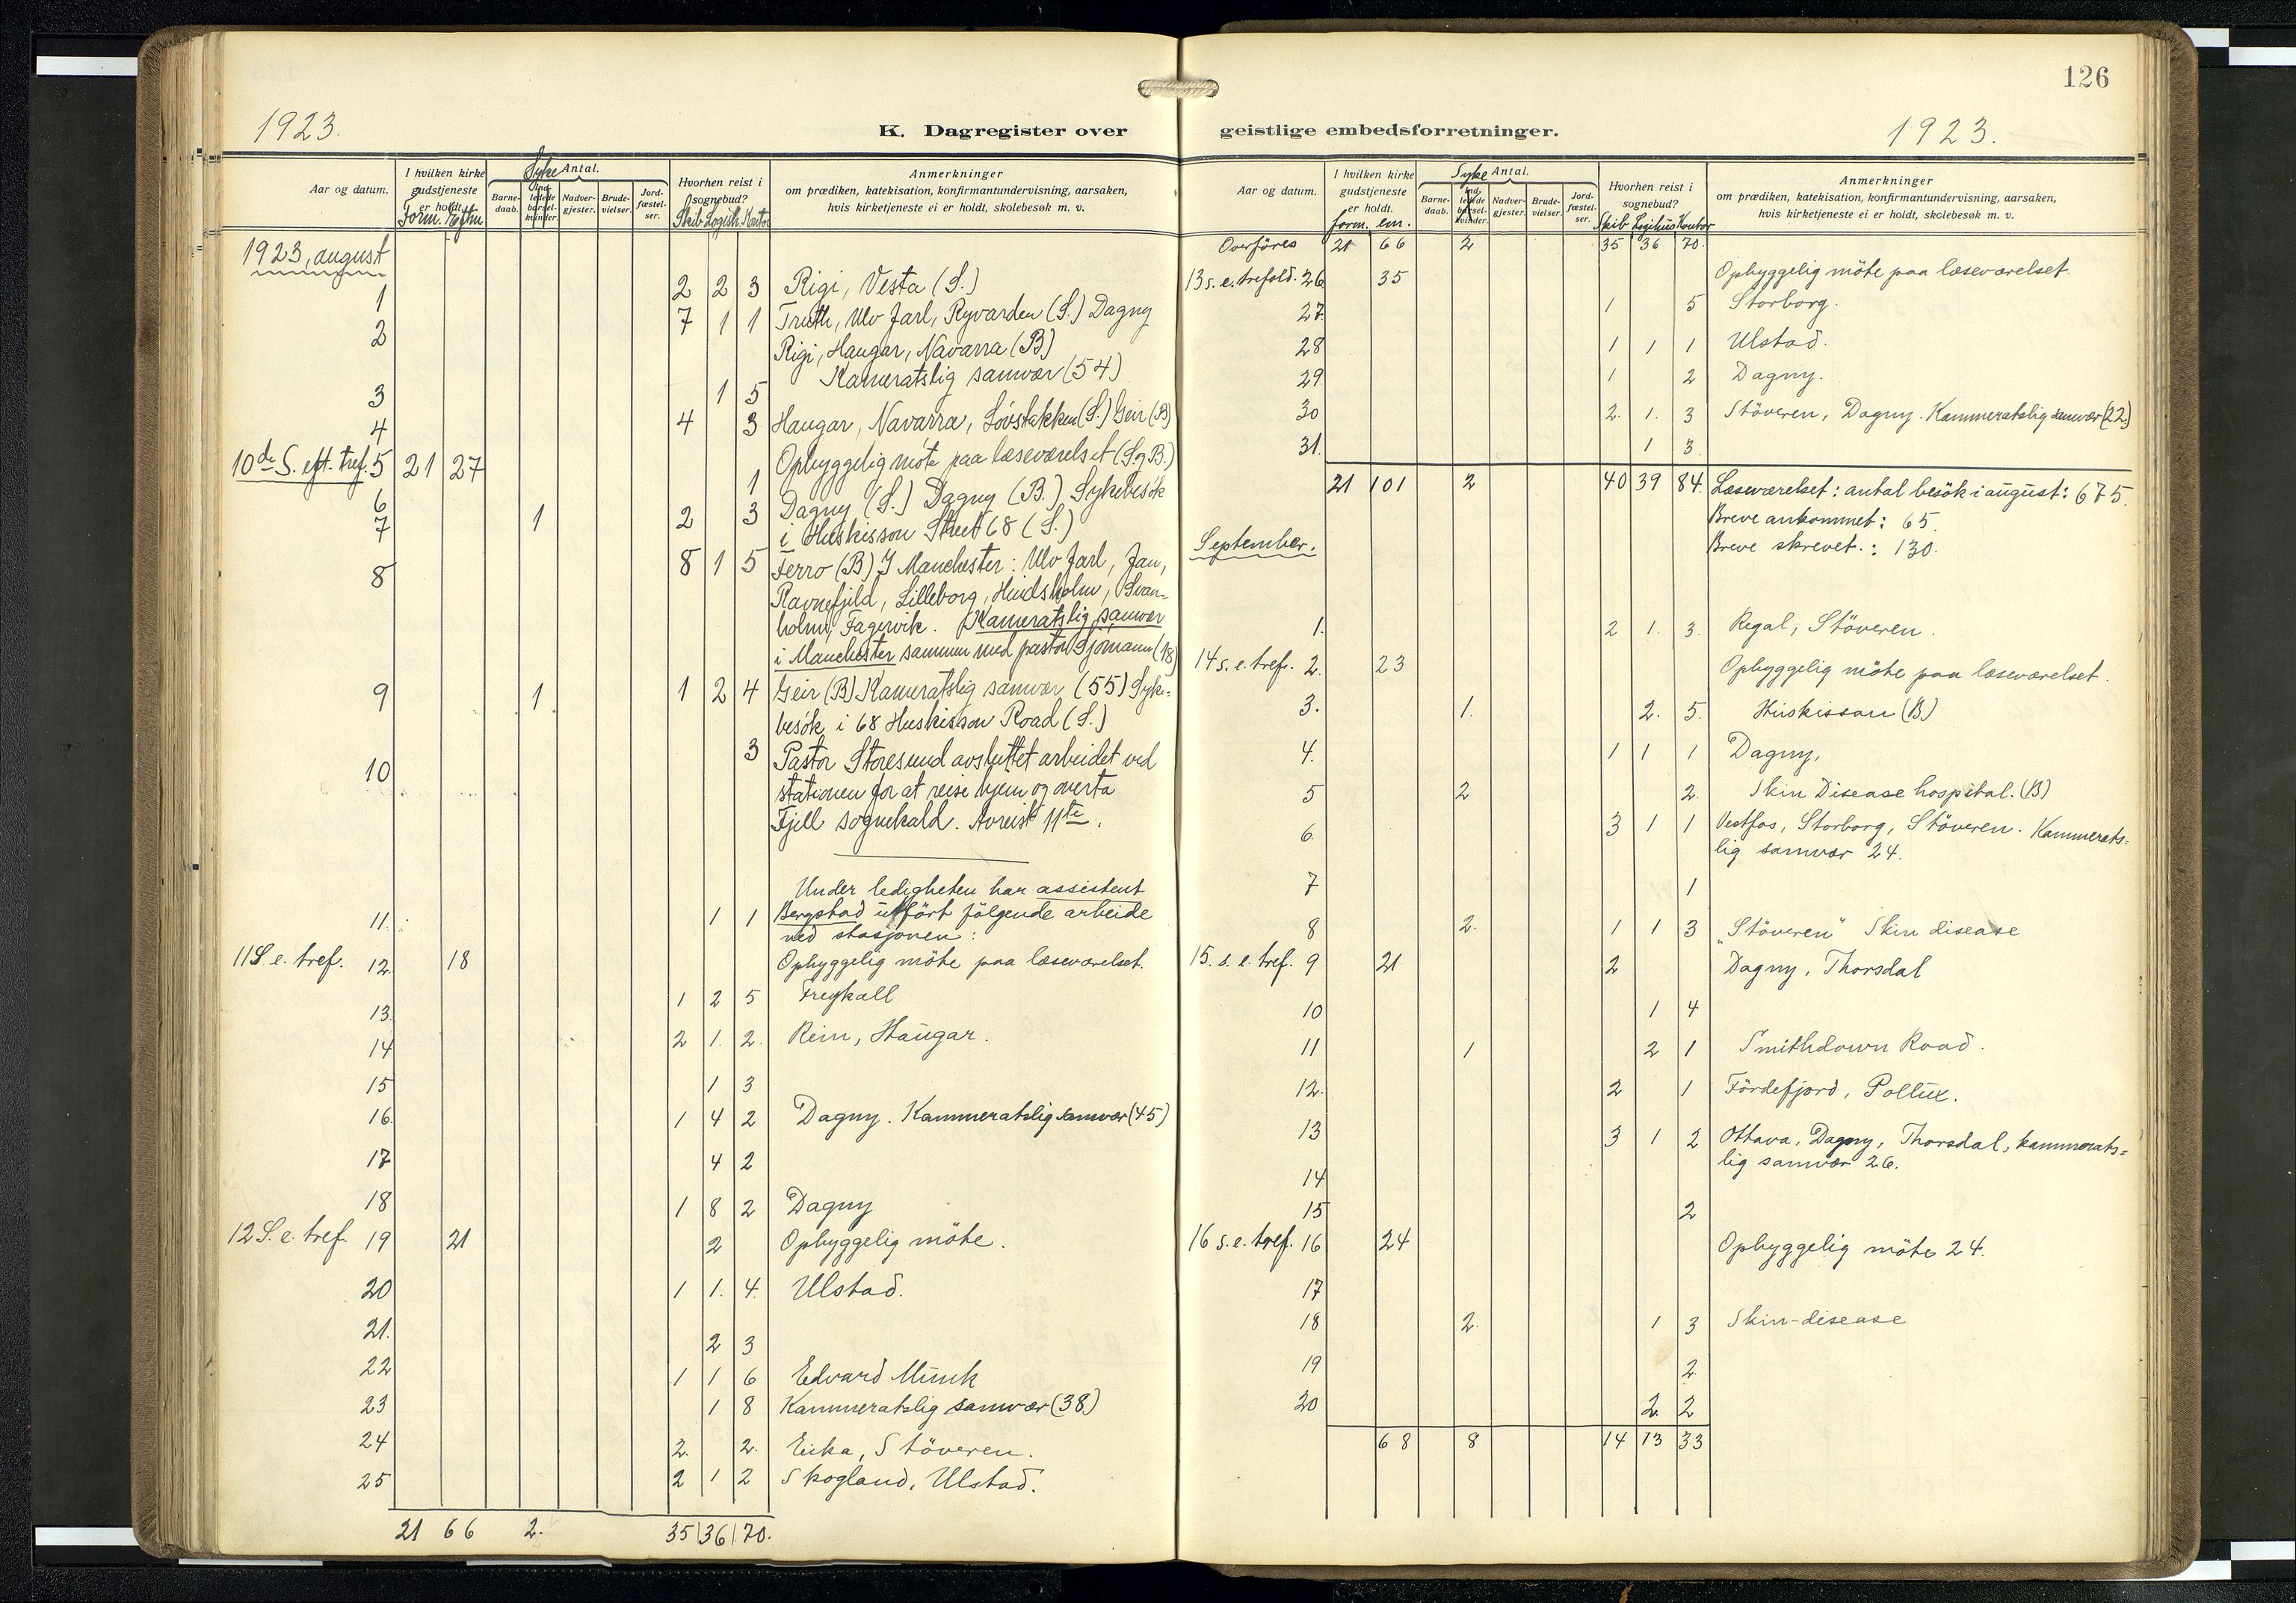 1923.
K. Dagregister over
Aar og datum.
I hvilken kirke gudstjeneste er holdt.
Form. Eftm
Syke Antal.
Barne-daab.
Ind-ledede barsel-kvinder.
Nadver-gjester.
Brude-vielser.
Jord-fæstel-ser.
Hvorhen reist i sognebud?
Skib Logish. Kontor
Anmerkninger
om prædiken, katekisation, konfirmantundervisning, aarsaken,
hvis kirketjeneste ei er holdt, skolebesøk m. v.
1923, august
1 2 2 3 Rigi, Vesta (S.)
2 7 1 1 Truth, Ulv Jarl, Ryvarden (S.) Dagny
Rigi, Haugar, Navarra (B)
3 1 5 Kameratslig samvær (54)
4 4 3 Haugar, Navarra, Lövstakken (S.) Geir (B)
10de S. eft. tref. 5 21 27 Opbyggelig möte paa læseværelset (S. og B.)
6 1
7 1 2 3 Dagny (S.) Dagny (B.) Sykebesök
i Huskisson Street 68 (S.)
8 8 1 5 Ferro (B) I Manchester: Ulv Jarl, Jan,
Ravnefjild, Lilleborg, Hindsholm, Svan-
holm, Fagervik. Kameratslig samvær
i Manchester sammen med pastor Sjömann (18)
9 1 1 2 4 Geir (B) Kameratslig samvær (55) Syke-
besök i 68 Huskisson Road (S.)
10 3 Pastor Storesund avsluttet arbeidet ved
stationen for at reise hjem og overta
Fjell sognekald. Avreist 11te.
Under ledigheten har assistent
11. 1 1 Bergstad utfört fölgende arbeide
ved stasjonen:
11 S. e. tref. 12. 18 Opbyggelig möte paa læseværelset.
13. 1 2 5 Freykall
14 2 1. 2. Rein, Haugar.
15 1 3
16. 1 4 2 Dagny. Kammeratslig samvær (45)
17 4 2
18 1 8 2 Dagny
12 S. e. tref. 19 21 2 Opbyggelig möte.
20 1 1. 4. Ulstad.
21. 2 3
22 1 1 6 Edvard Munk
23 1 8 Kammeratslig samvær (38)
24 2. 2. Erika, Stöveren.
25 2 1 2 Skogland, Ulstad.
21 66 2. 35 36 70.
126
geistlige embedsforretninger.
1923.
Aar og datum.
I hvilken kirke gudstjeneste er holdt.
form. em.
Syke Antal.
Barne-daab.
Ind-ledede barsel-kvinder.
Nadver-gjester.
Brude-vielser.
Jord-fæstel-ser.
Hvorhen reist i sognebud?
Skib Logihus Kontor
Anmerkninger
om prædiken, katekisation, konfirmantundervisning, aarsaken,
hvis kirketjeneste ei er holdt, skolebesøk m. v.
Overföres 21 66 2 35 36 70.
13 s. e. trefold. 26 35 Opbyggelig möte paa læseværelset.
27. 1 5 Storborg.
28 1 1 1 Ulstad.
29 1 2 Dagny.
30 2. 1. 3 Stöveren, Dagny. Kammeratslig samvær (22)
31. 1 3.
21 101 2 40 39 84. Læseværelset: antal besök i august: 675.
Breve ankommet: 65.
Breve skrevet.: 130.
September.
1. 2 1. 3. Regal, Stöveren.
14 s. e. tref. 2. 23 Opbyggelig möte paa læseværelset.
3. 1. 2. 5. Huskisson (B)
4. 1 1 1 Dagny,
5 2 2. Skin Disease hospital. (B)
6. 3 1 1 Vestfos, Storborg, Stöveren. Kammerats=
lig samvær 24.
7 1
8 2. 1 1 3 "Stöveren" Skin disease
15. s. e. tref. 9 21 2 Dagny, Thorsdal
10 1 4
11 1 2 1 Smithdown Road.
12. 2 1 Fördefjord, Pollux.
13 3 1 2 Ottava, Dagny, Thorsdal, kammerats=
lig samvær 26.
14
15 2
16 s. e. tref. 16 24 Opbyggelig möte 24.
17
18 2. 1 3 Skin-disease
19 2.
20 2. 2
68 8 14 13 33